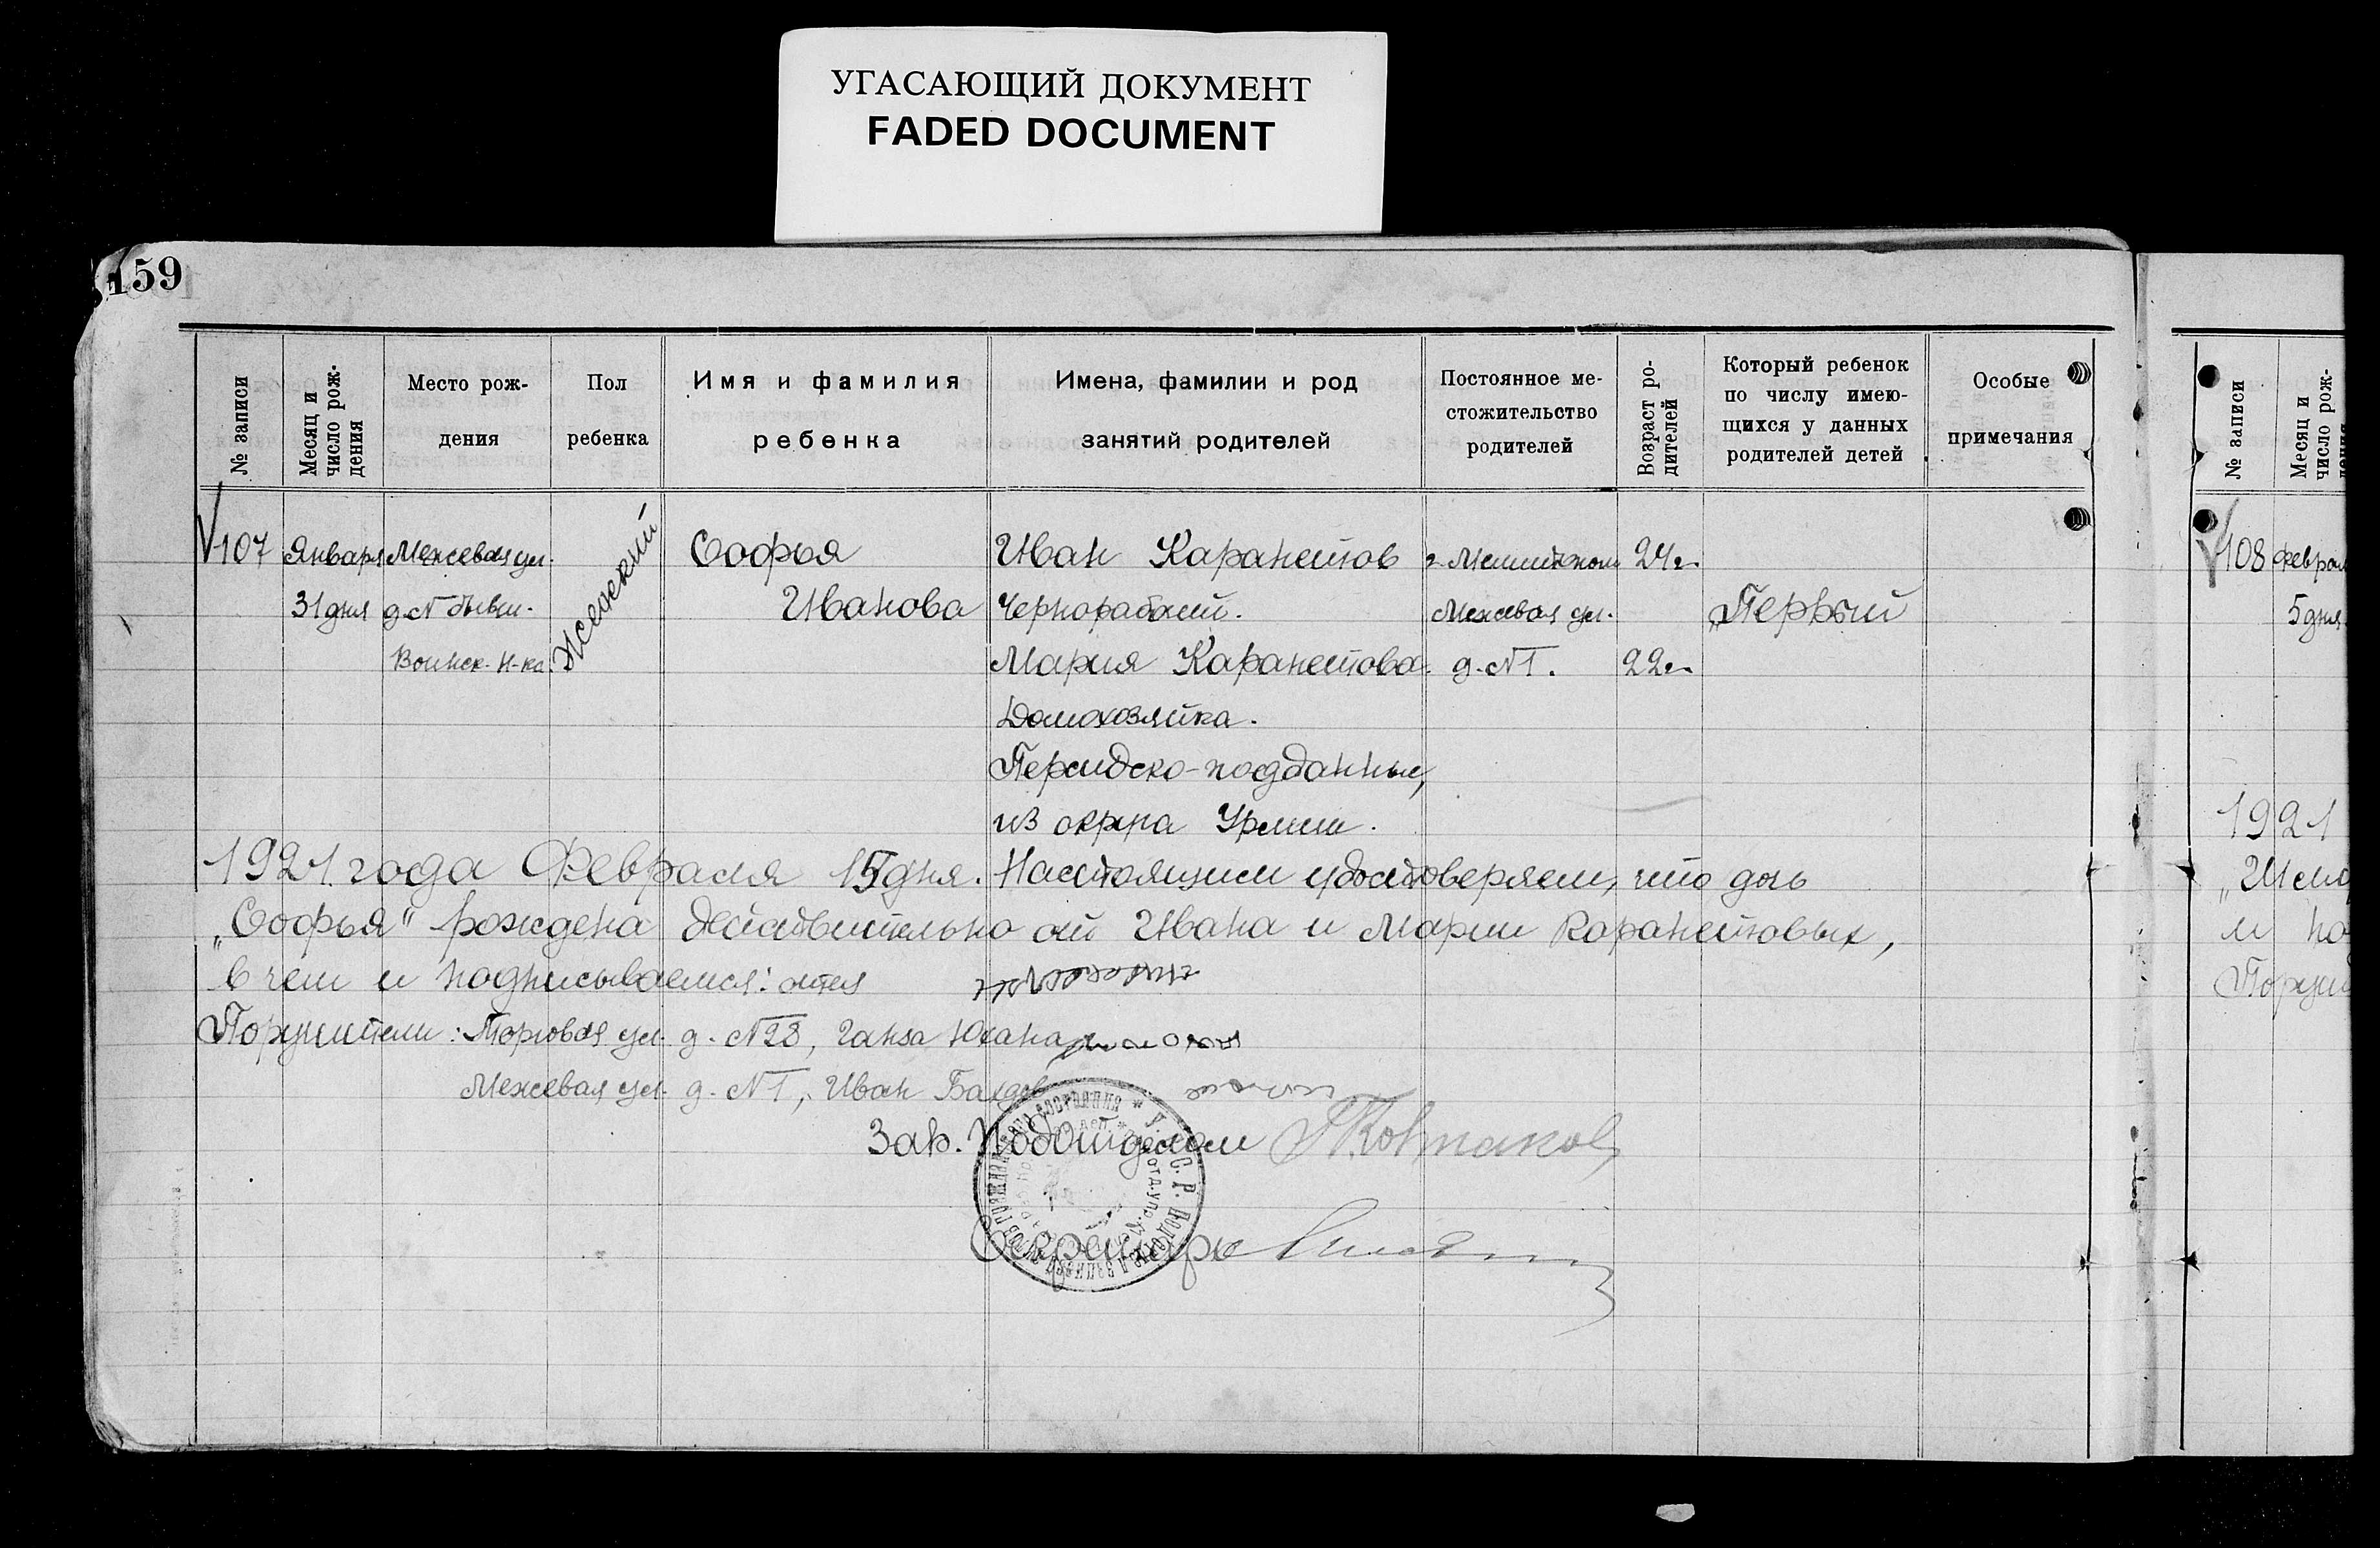 УГАСАЮЩИЙ ДОКУМЕНТ
FADED DOCUMENT
159
№ записи
Месяц и
число рож-
дения
Место рож-
дения
Пол
ребенка
Имя и фамилия
ребенка
Имена, фамилии и род
занятий родителей
Постоянное ме-
стожительство
родителей
Возраст ро-
дителей
Который ребенок
по числу имею-
щихся у данных
родителей детей
Особые
примечания
107 Января Межевая ул. Женский Софья Иван Каранетов 24 г.
31 дня д. № бывш. Иванова Чернорабочий. Межевая ул. "Первый
Воинск. Н-ка. Мария Каранетова. д. №1. 22 г.
Домохозяйка.
Персидско-подданные,
из округа Урмии.
1921 года Февраля 15 дня. Настоящим удостоверяем, что дочь
„Софья" рождена действительно от Ивана и Марии Каранетовых,
в чем и подписываемся: отец
Поручители: Торговая ул. д. №28, Ганза Юхана
Межевая ул. д. №1, Иван
Зав. Подотделом
Секретарь
№ записи
Месяц и
число рож-
дения
108 Феврал
5 дня
1921
и по